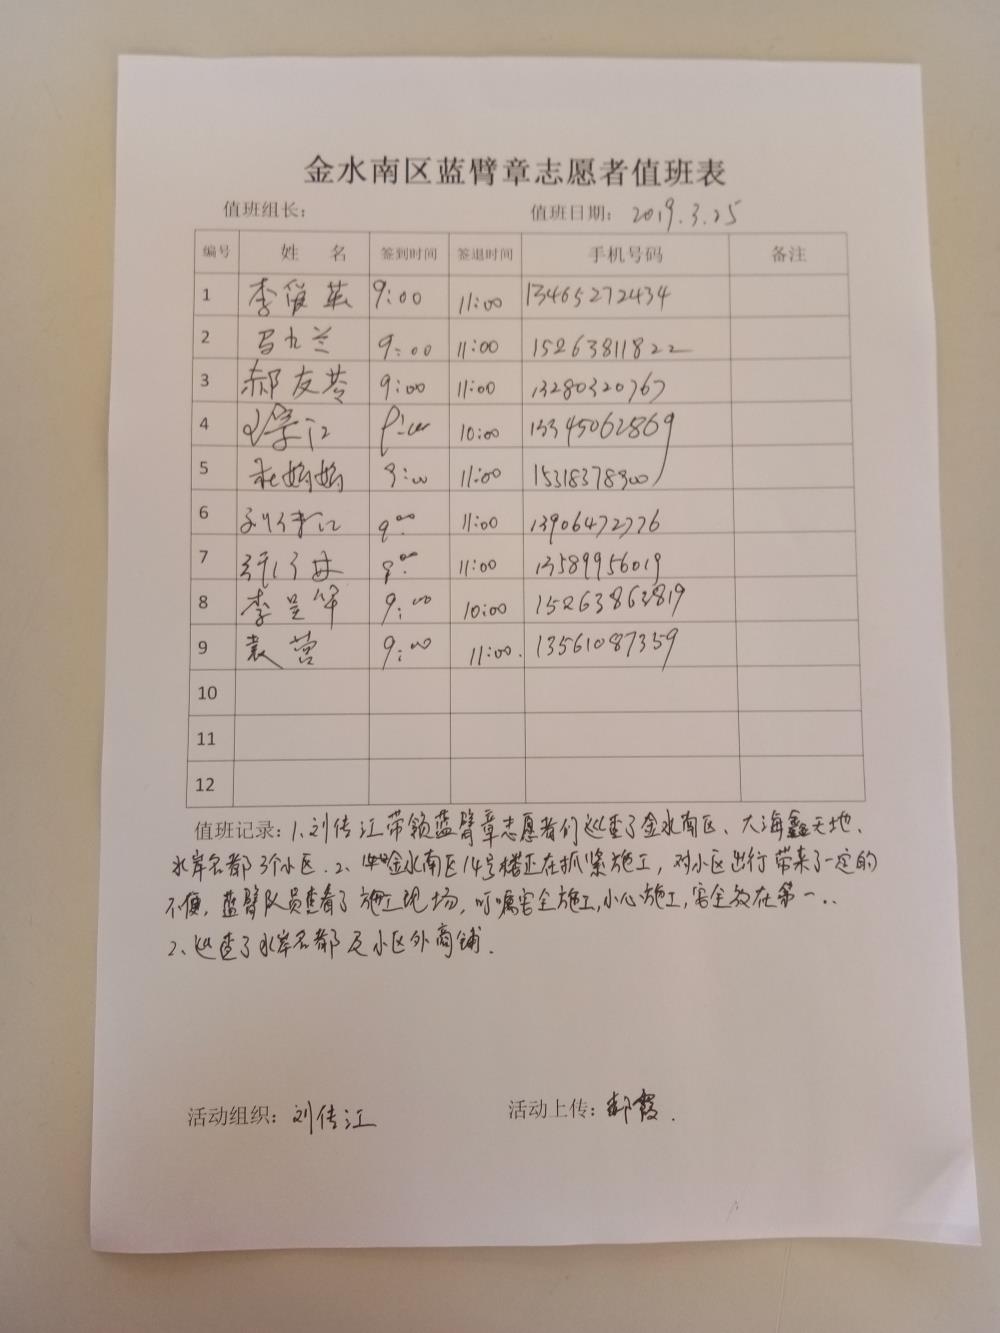 金水南区蓝臂章志愿者值班表
值班组长： 值班日期： 2019.3.25
编号 姓 名 签到时间 签退时间 手机号码 备注
1 李俊英 9:00 11:00 13465272434
2 马九兰 9:00 11:00 15263811822
3 郝友苓 9:00 11:00 13280320767
4 江 10:00 13345062869
5 杜娟娟 9:00 11:00 15318378300
6 刘传江 9:00 11:00 13906472776
7 9:00 11:00 13589956019
8 李呈华 9:00 10:00 15263863819
9 袁营 9:00 11:00. 13561087359
10
11
12
值班记录: 1、刘传江带领蓝臂章志愿者们巡查了金水南区、大海鑫天地、
水岸名都3个小区. 2、金水南区14号楼正在抓紧施工，对小区出行带来了一定的
不便，蓝臂队员查看了施工现场，叮嘱安全施工,小心施工,安全放在第一..
2、巡查了水岸名都及小区外商铺.
活动组织: 刘传江 活动上传: 郝霞.